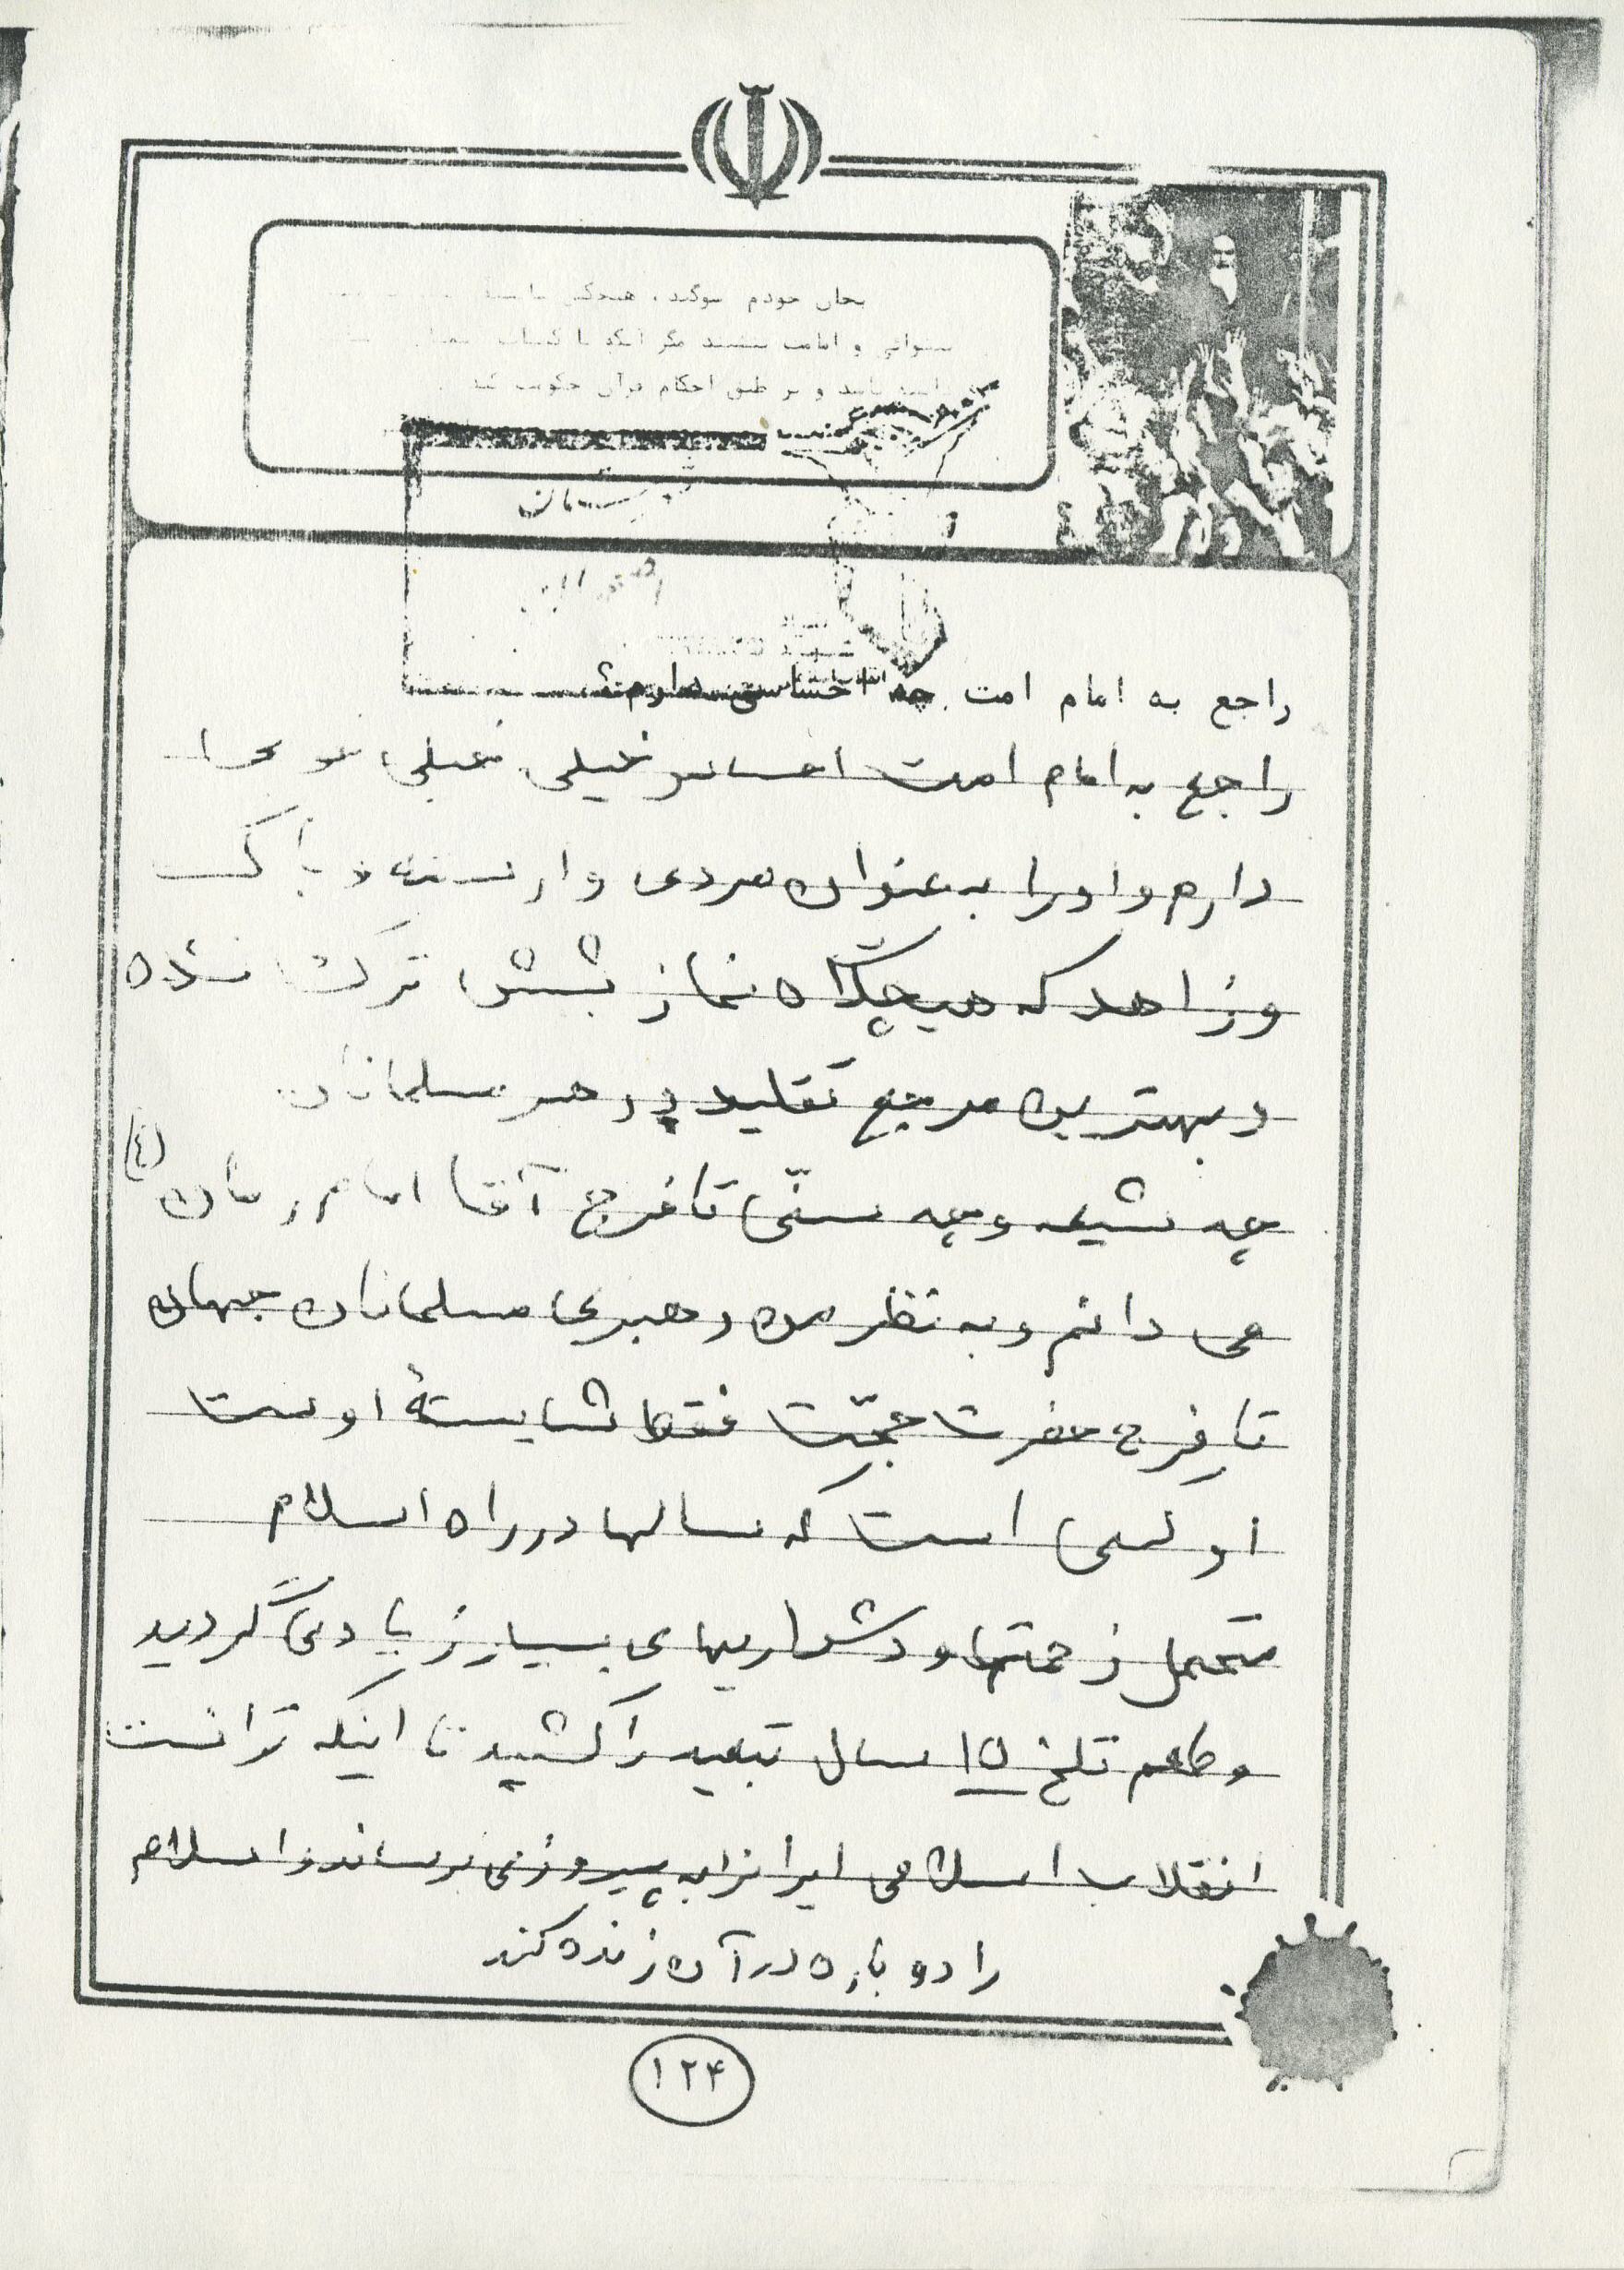 بجان خودم سوگند، هیچکس
و امامت مگر آنکه با کتاب
باشد و بر طبق احکام قرآن حکومت کند
راجع به امام امت چه احساسی دارم؟
راجع به امام امت احساس خیلی خیلی خوبی را
دارم و او را به عنوان مردی وارسته و پاک
و زاهد که هیچگاه نماز شبش ترک نشده
و بهترین مرجع تقلید در هر مسلمانان
چه شیعه و چه سنّی تا فرج آقا امام زمان (ع)
می دانم و به نظر من رهبری مسلمانان جهان
تا فرج حضرت حجّت فقط شایستهٔ اوست
او کسی است که سالها در راه اسلام
متحمل زحمتها و دشواریهای بسیار زیادی گردید
و طعم تلخ ۱۵ سال تبعید را کشید تا اینکه توانست
انقلاب اسلامی ایران را به پیروزی برساند و اسلام
را دوباره در آن زنده کند
۱۲۴